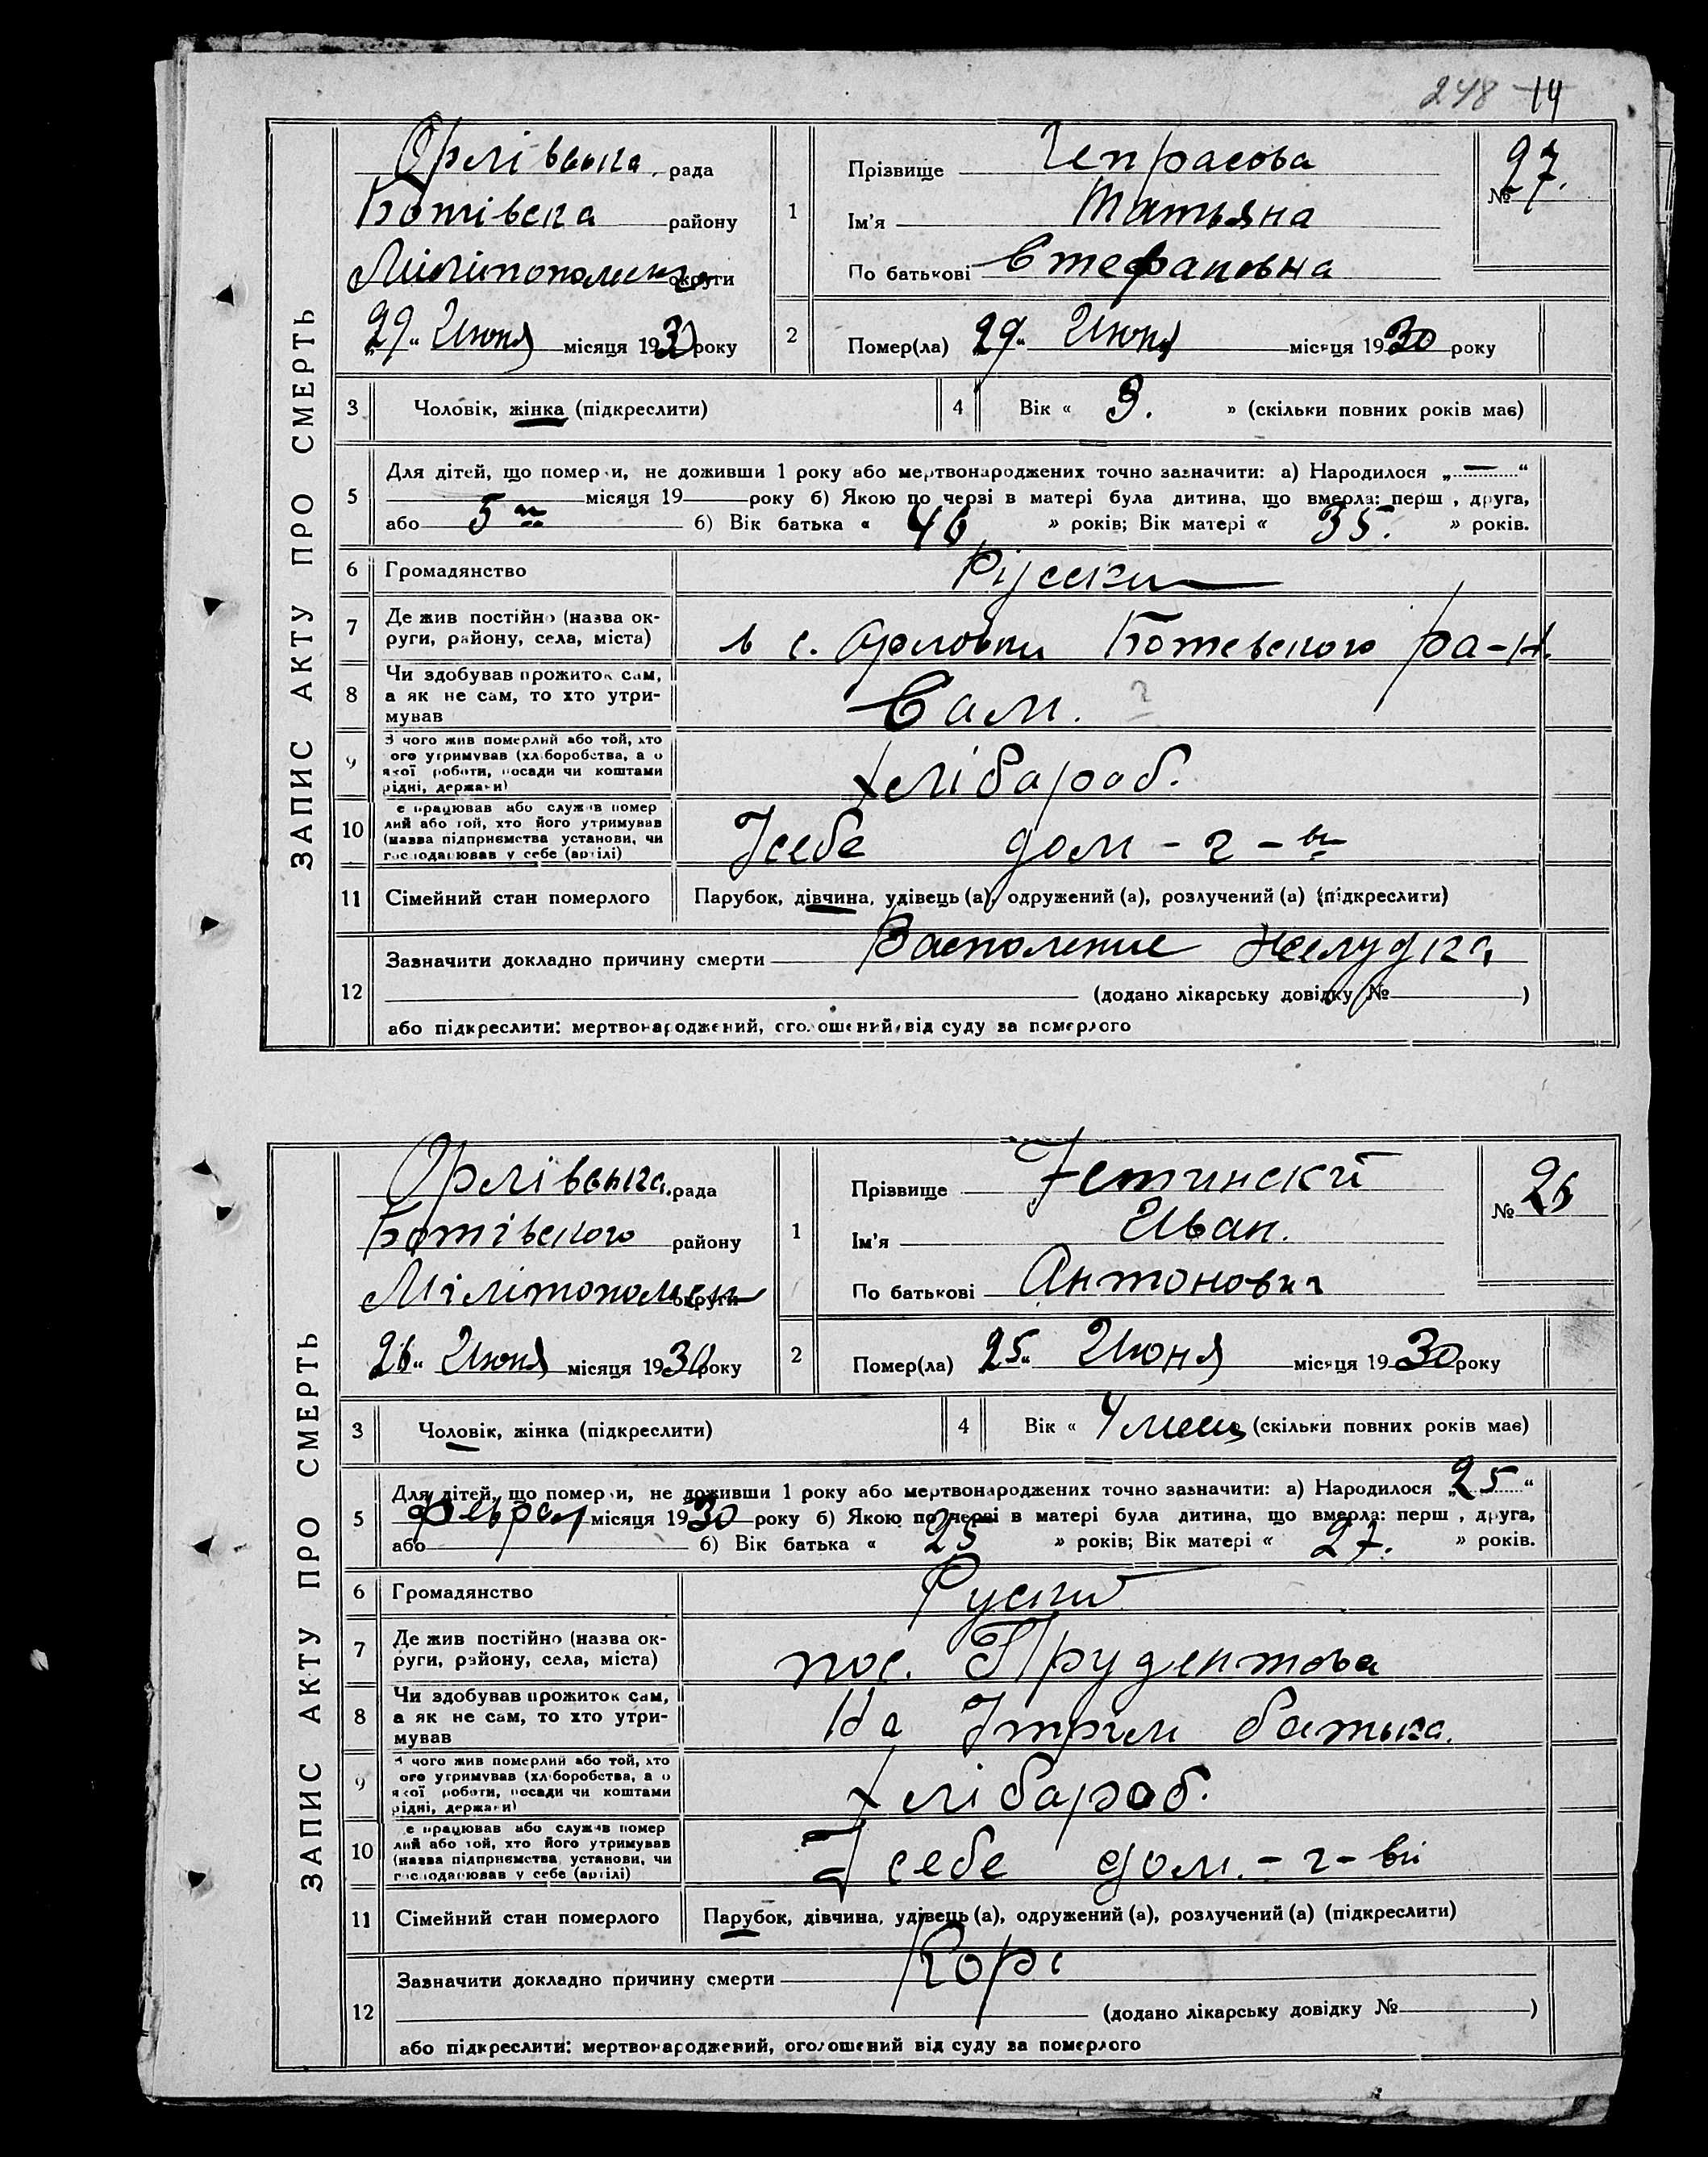 248 14
ЗАПИС АКТУ ПРО СМЕРТЬ
Орлівська рада
Ботівска району
Мілітопольск округи
29 Июня місяця 1930 року
1
Прізвище Чепрасова
Ім'я Татьяна
По батькові Стефановна
№ 27.
2
Помер(ла) 29 Июня місяця 1930 року
3 Чоловік, жінка (підкреслити)
4 Вік « 3. » (скільки повних років має)
5 Для дітей, що померли, не доживши 1 року або мертвонароджених точно зазначити: а) Народилося „—“
місяця 19 року б) Якою по черзі в матері була дитина, що вмерла: перш , друга,
або 5 б) Вік батька « 46 » років; Вік матері « 35. » років.
6 Громадянство Русски
7 Де жив постійно (назва ок-
руги, району, села, міста) в с. Орловки Ботевского ра-н.
8 Чи здобував прожиток сам,
а як не сам, то хто утри-
мував Сам. ?
9 З чого жив померлий або той, хто
ого утримував (хліборобства, а о
якої роботи, посади чи коштами
рідні, держави) Хлібароб.
10 е працював або служив помер
лий або той, хто його утримував
(назва підприємства установи, чи
господарював у себе (артілі) Усебе дом-г-ві
11 Сімейний стан померлого Парубок, дівчина, удівець (а), одружений (а), розлучений (а) (підкреслити)
12 Зазначити докладно причину смерти Васполение желудка
(додано лікарську довідку № )
або підкреслити: мертвонароджений, оголошений від суду за померлого
ЗАПИС АКТУ ПРО СМЕРТЬ
Орлівська рада
Ботівского району
Мілітопольск округи
26 Июня місяця 1930 року
1
Прізвище Устинский
Ім'я Иван.
По батькові Антонович
№ 26
2
Помер(ла) 25 Июня місяця 1930 року
3 Чоловік, жінка (підкреслити)
4 Вік « 4 месяц (скільки повних років має)
5 Для дітей, що померли, не доживши 1 року або мертвонароджених точно зазначити: а) Народилося „25“
Феврал місяця 1930 року б) Якою по черзі в матері була дитина, що вмерла: перш , друга,
або б) Вік батька « 25 » років; Вік матері « 27. » років.
6 Громадянство Руский
7 Де жив постійно (назва ок-
руги, району, села, міста) пос. Прудентова
8 Чи здобував прожиток сам,
а як не сам, то хто утри-
мував На Утрим батька.
9 З чого жив померлий або той, хто
ого утримував (хліборобства, а о
якої роботи, посади чи коштами
рідні, держави) Хлібароб.
10 е працював або служив помер
лий або той, хто його утримував
(назва підприємства, установи, чи
господарював у себе (артілі) У себе дом.-г-ві
11 Сімейний стан померлого Парубок, дівчина, удівець (а), одружений (а), розлучений (а) (підкреслити)
12 Зазначити докладно причину смерти Корь
(додано лікарську довідку № )
або підкреслити: мертвонароджений, оголошений від суду за померлого